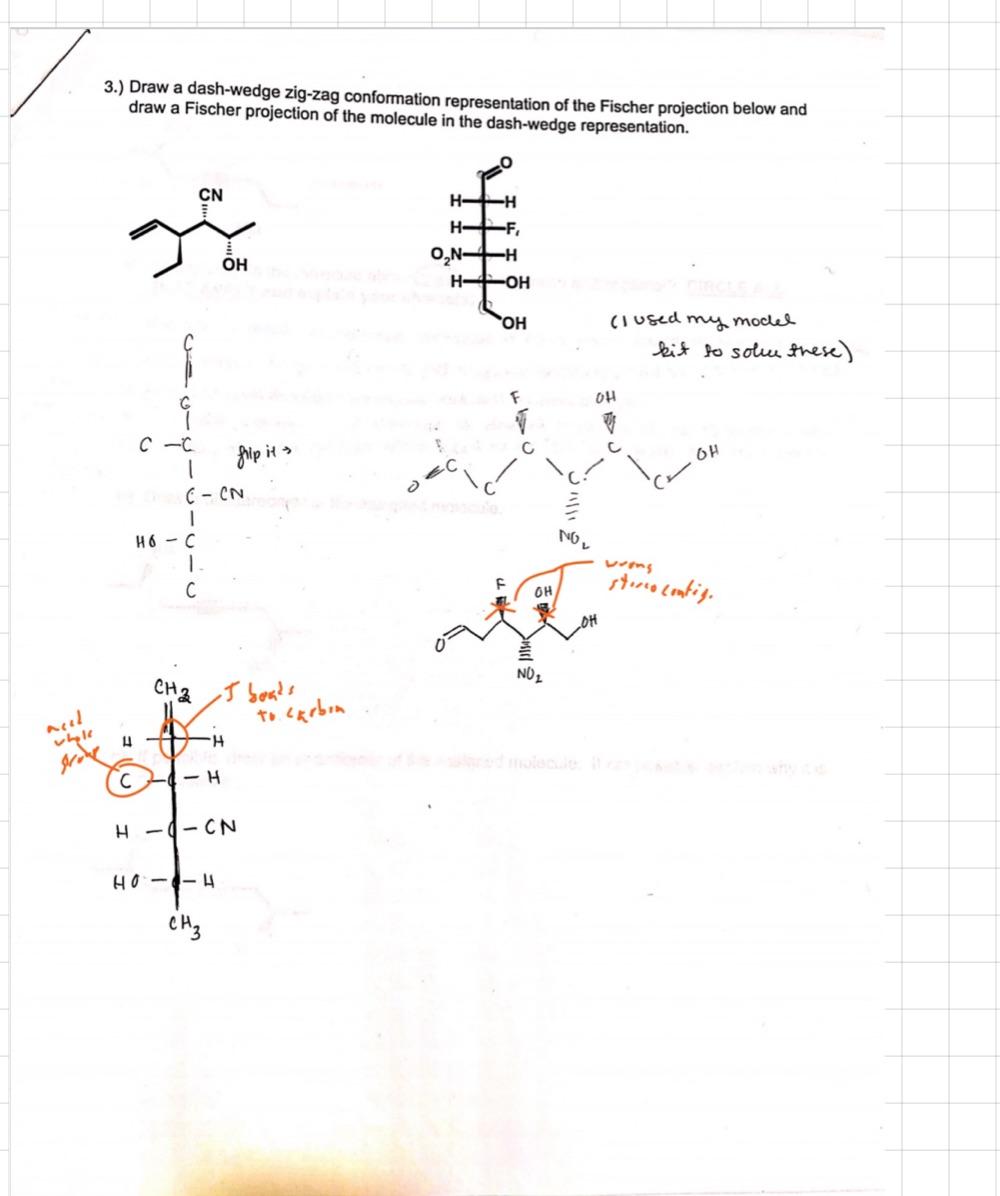 3.) Draw a dash-wedge zig-zag conformation representation of the Fischer projection below and
draw a Fischer projection of the molecule in the dash-wedge representation.
CN
OH
O
H H
H F,
O2N H
H OH
OH
(I used my model
kit to solve these)
C
C
C - C
flip it →
C - CN
HO - C
C
F OH
O C C C C C C OH
NO2
wrong
stereo config.
F OH
O OH
NO2
CH2
5 bonds
to carbon
need
whole
group
H H
C - C - H
H - C - CN
HO - C - H
CH3